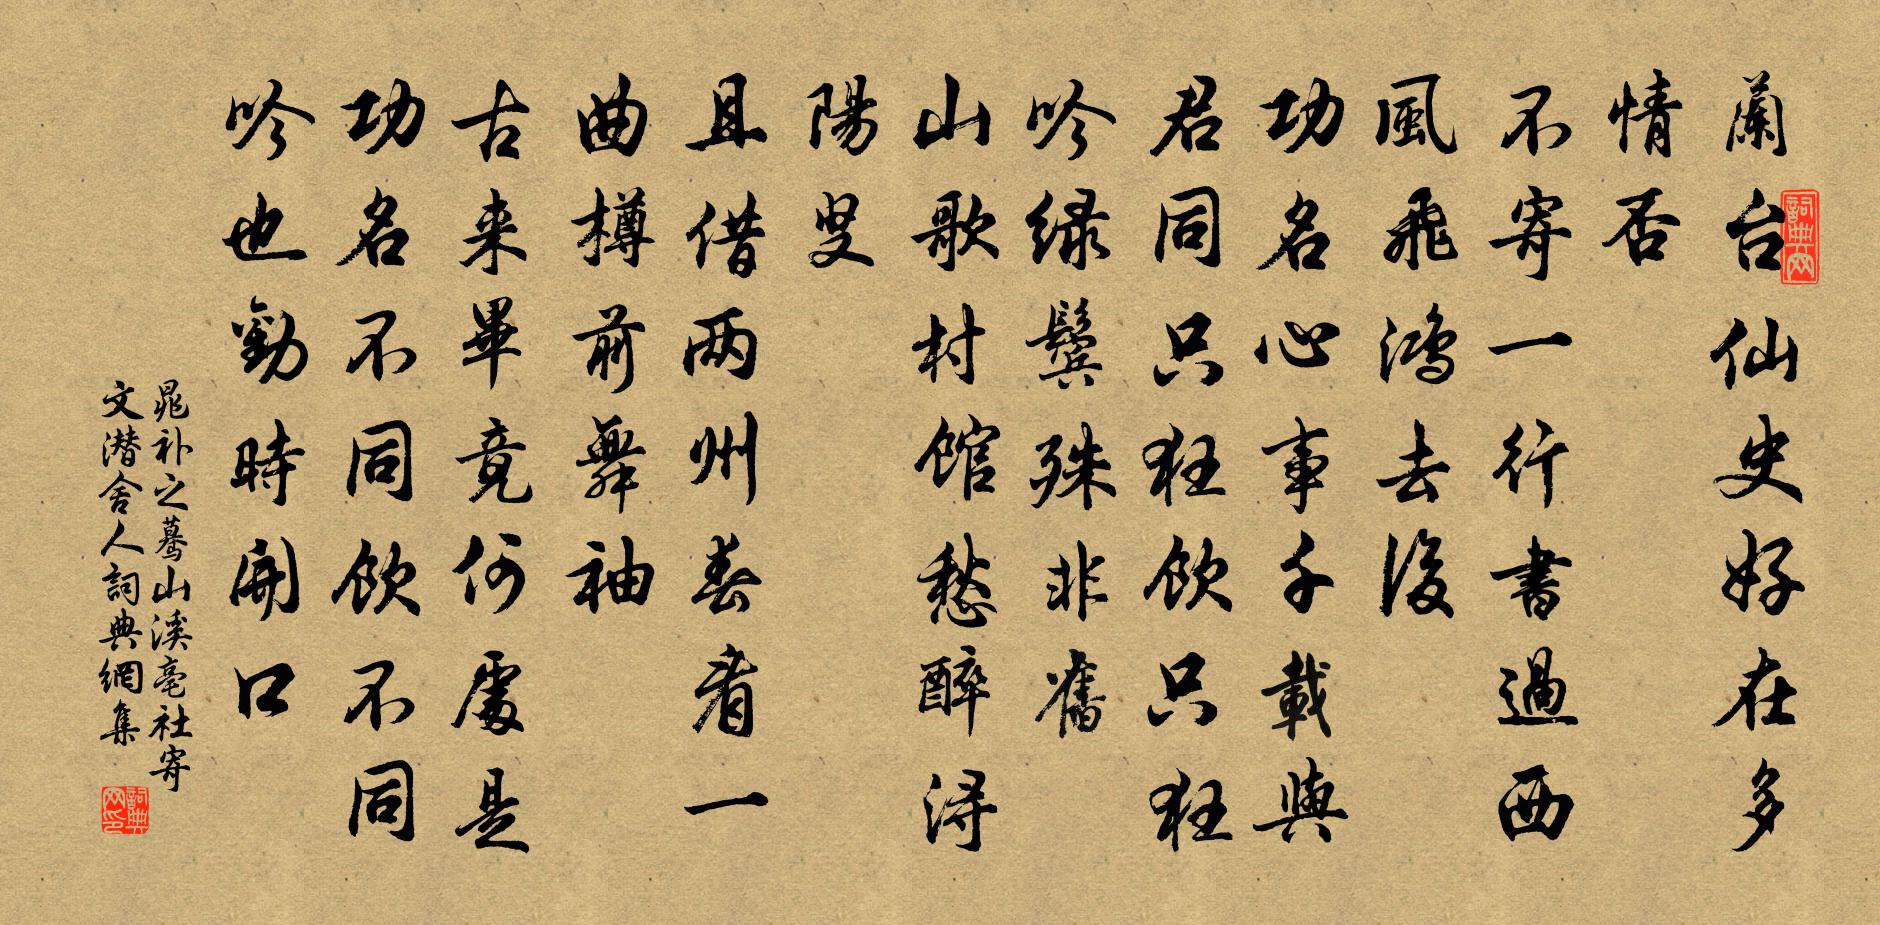 蘭台仙史好在多
情否
不寄一行書過西
風飛鴻去後
功名心事千載與
君同只狂飲只狂
吟綠鬢殊非舊
山歌村館愁醉潯
陽叟
且借兩州春看一
曲樽前舞袖
古来畢竟何處是
功名不同飲不同
吟也勸時開口
晁补之驀山溪亳社寄
文潜舍人詞典網集
詞典网
詞典网印